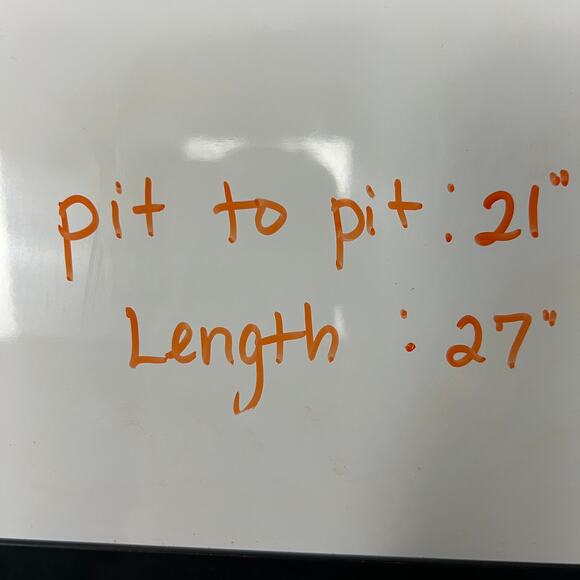 pit to pit : 21"
Length : 27"